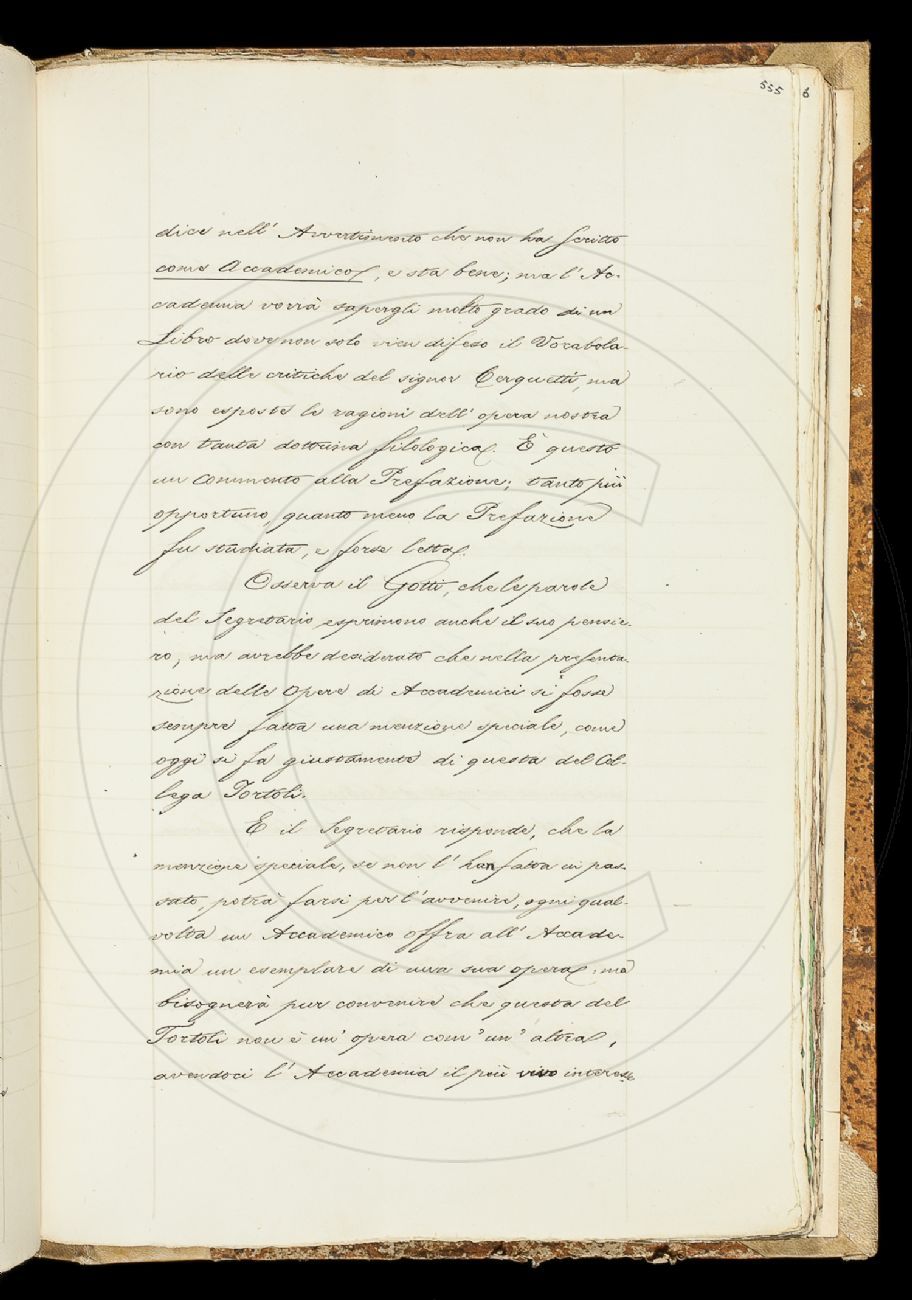 555 6
dice nell' Avvertimento che non ha scritto
come Accademico, e sta bene; ma l'Ac-
cademia vorrà sapergli molto grado di un
Libro dove non solo vien difeso il Vocabola-
rio delle critiche del signor Cerquetti, ma
sono esposte le ragioni dell' opera nostra
con tanta dottrina filologica. È questo
un commento alla Prefazione; tanto più
opportuno, quanto meno la Prefazione
fu studiata, e forse letta.
Osserva il Gotti, che le parole
del Segretario esprimono anche il suo pensie-
ro; ma avrebbe desiderato che nella presenta-
zione delle opere di Accademici si fosse
sempre fatta una menzione speciale, come
oggi si fa giustamente di questa del Col-
lega Tortoli.
E il Segretario risponde, che la
menzione speciale, se non l' han fatta in pas-
sato, potrà farsi per l'avvenire, ogni qual
volta un Accademico offra all' Accade-
mia un esemplare di una sua opera: ma
bisognerà pur convenire che questa del
Tortoli non è un' opera com' un' altra,
avendoci l' Accademia il più vivo interesse